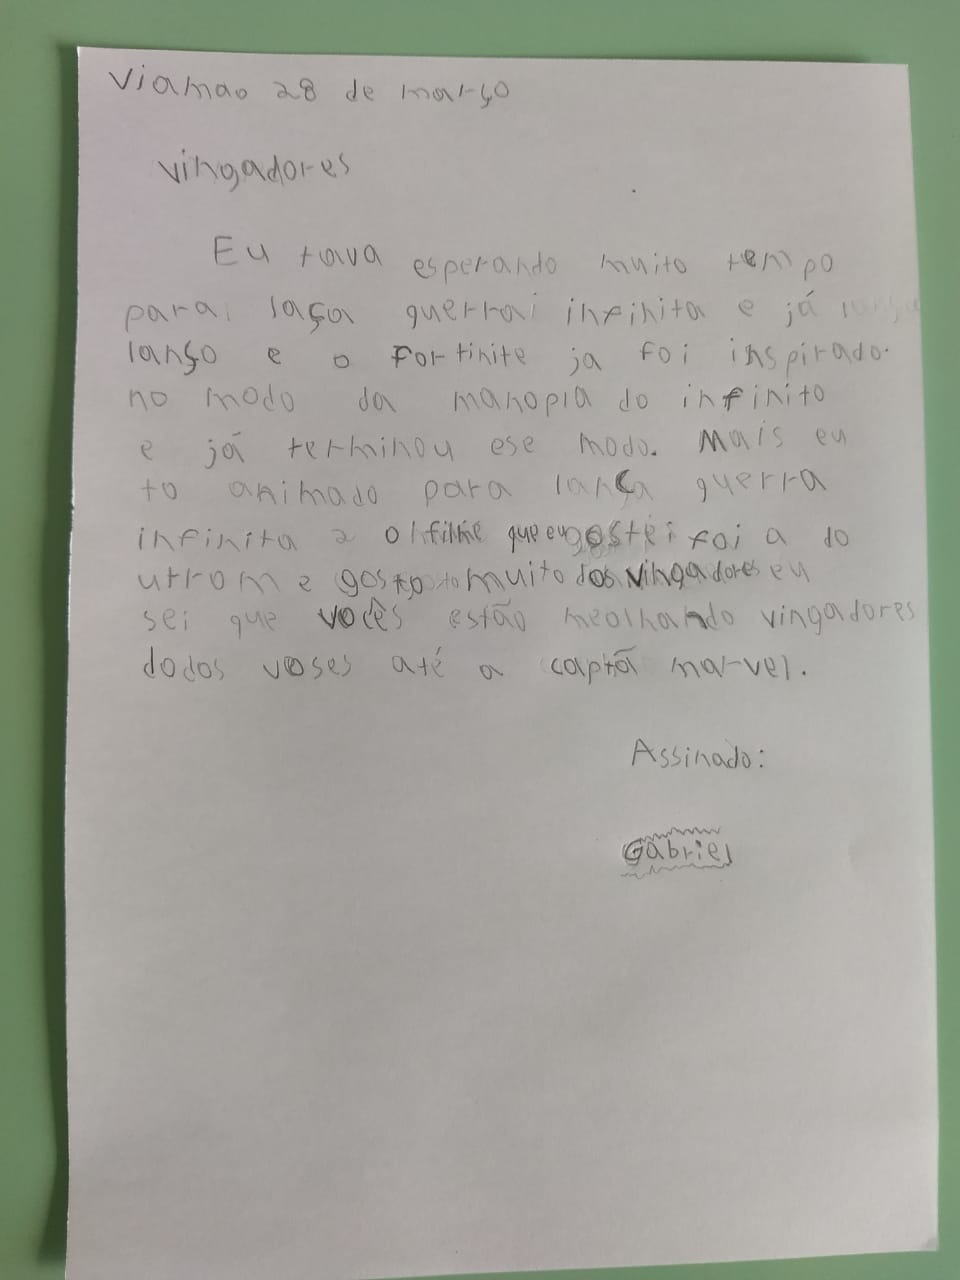 Viamao 28 de março
vingadores
Eu tava esperando muito tempo
para laça guerrai infinita e já lança
lanço e o Fortinite ja foi inspirado.
no modo da manopla do infinito
e já terminou ese modo. Mais eu
to animado para lança guerra
infinita 2 o filme que eu gostei foi a do
utrom e gosto muito dos vingadores eu
sei que vocês estão meolhando vingadores
dodos voses até a captã marvel.
Assinado:
Gabriel